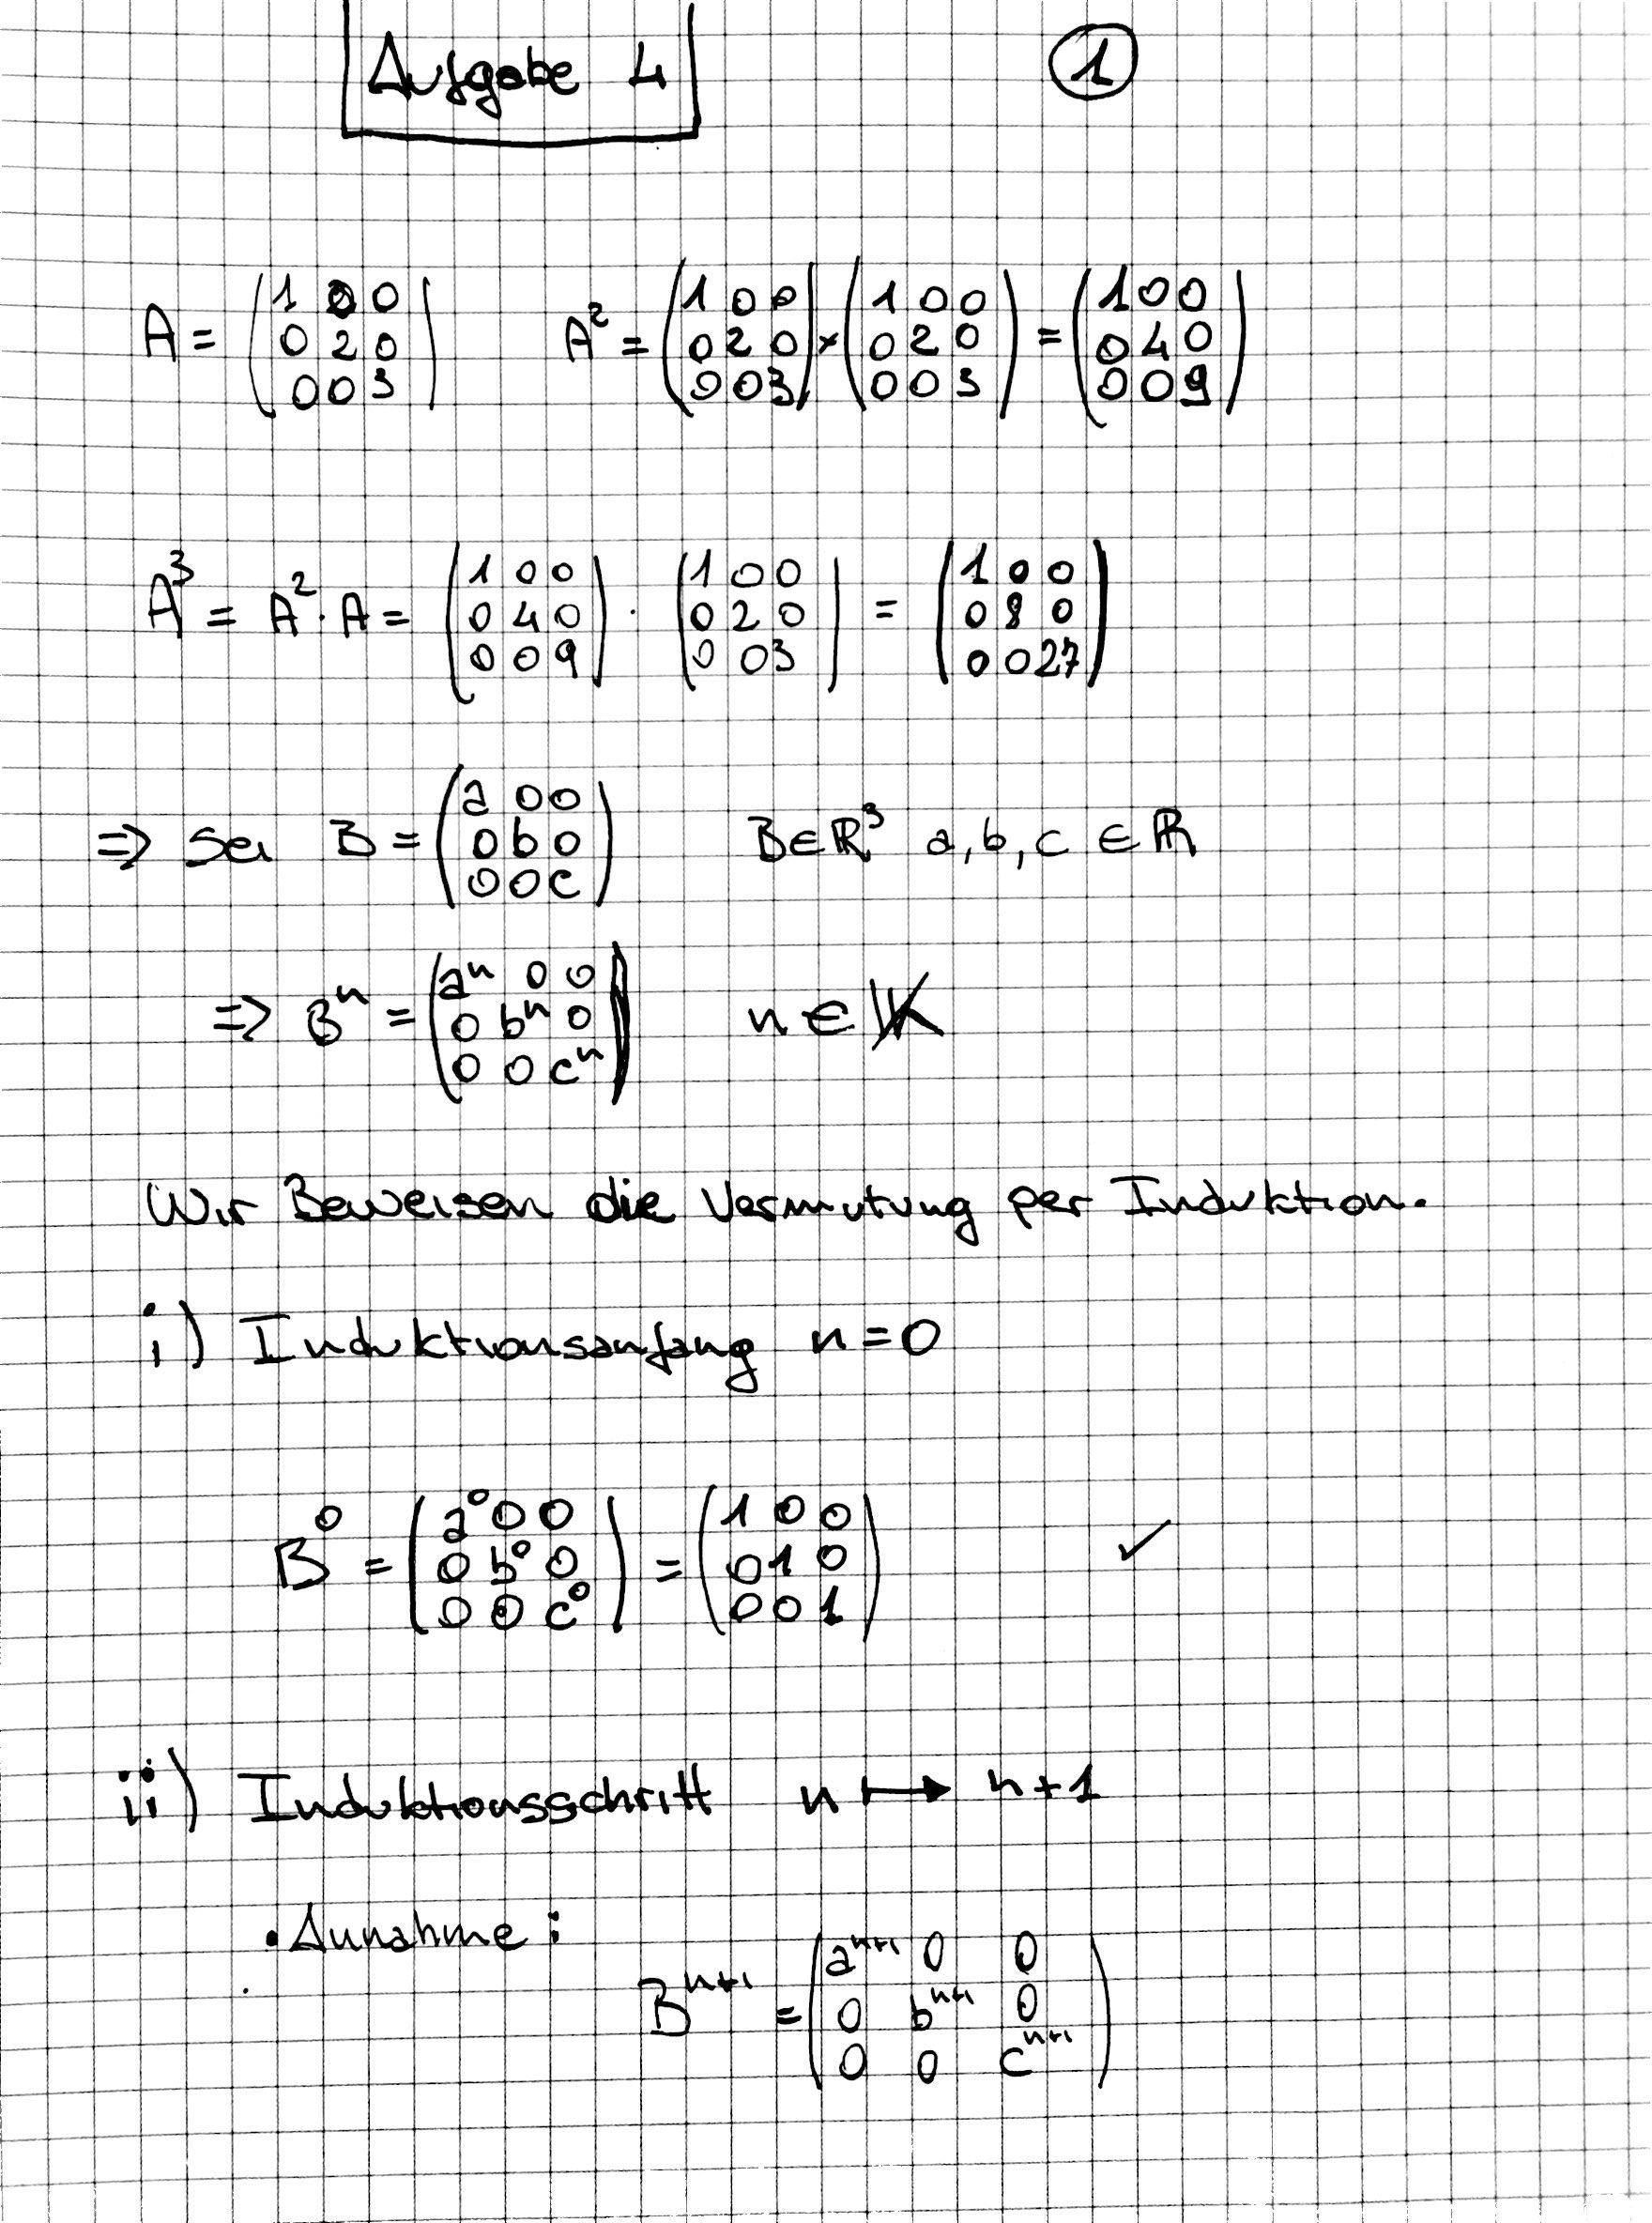 Aufgabe 4 ①
A = (1 0 0 / 0 2 0 / 0 0 3) A² = (1 0 0 / 0 2 0 / 0 0 3) × (1 0 0 / 0 2 0 / 0 0 3) = (1 0 0 / 0 4 0 / 0 0 9)
A³ = A² · A = (1 0 0 / 0 4 0 / 0 0 9) · (1 0 0 / 0 2 0 / 0 0 3) = (1 0 0 / 0 8 0 / 0 0 27)
⇒ Sei B = (a 0 0 / 0 b 0 / 0 0 c) B∈ℝ³ a, b, c ∈ ℝ
⇒ Bⁿ = (aⁿ 0 0 / 0 bⁿ 0 / 0 0 cⁿ) n ∈ 𝕂
Wir Beweisen die Vermutung per Induktion.
i) Induktionsanfang n = 0
B⁰ = (a⁰ 0 0 / 0 b⁰ 0 / 0 0 c⁰) = (1 0 0 / 0 1 0 / 0 0 1) ✓
ii) Induktionsschritt n ↦ n+1
• Annahme:
Bⁿ⁺¹ = (aⁿ⁺¹ 0 0 / 0 bⁿ⁺¹ 0 / 0 0 cⁿ⁺¹)